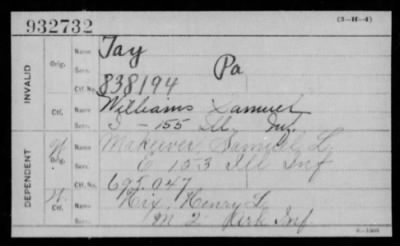 932732
(3-H-4)
INVALID
Orig.
Name
Tay
Serv.
Pa
Ctf. No.
838194
Ctf.
Name
Williams Samuel
Serv.
155 Ill. Inf.
DEPENDENT
W
Orig.
Name
Makeever, Samuel L.
Serv.
C 103 Ill Inf
Ctf. No.
695,047
W
Ctf.
Name
Nix, Henry L.
Serv.
M 2 Inf